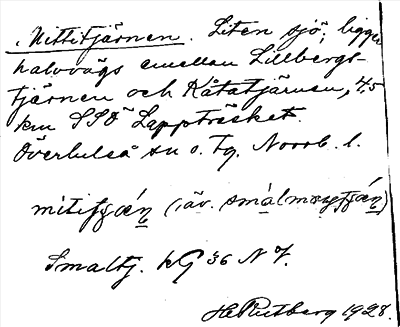 Mittitjärnen. Liten sjö, ligger
halvvägs emellan Lillbergs-
tjärnen och Kåtatjärnen, 4,5
km SSO Lappträsket.
Överluleå sn o. Tg. Norrb. l.
mitifjæn (äv.
Smaltj. KG 36 N 7.
H. Rutberg 1928.